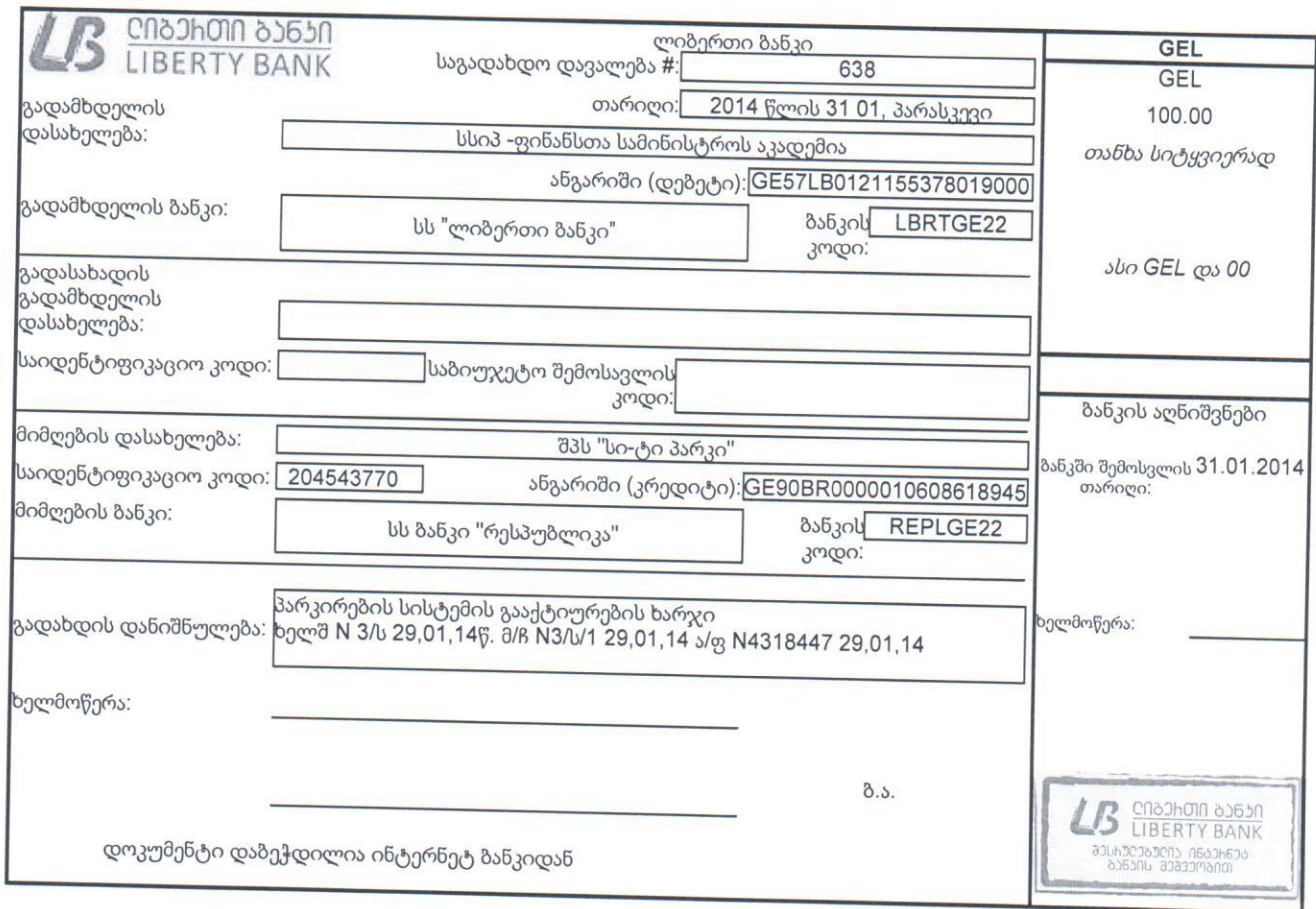 ლიბერთი ბანკი
LIBERTY BANK
ლიბერთი ბანკი
საგადახდო დავალება #: 638
თარიღი: 2014 წლის 31 01, პარასკევი
გადამხდელის
დასახელება:
სსიპ -ფინანსთა სამინისტროს აკადემია
ანგარიში (დებეტი): GE57LB0121155378019000
გადამხდელის ბანკი:
სს "ლიბერთი ბანკი"
ბანკის LBRTGE22
კოდი:
გადასახადის
გადამხდელის
დასახელება:
საიდენტიფიკაციო კოდი:
საბიუჯეტო შემოსავლის
კოდი:
მიმღების დასახელება: შპს "სი-ტი პარკი"
საიდენტიფიკაციო კოდი: 204543770 ანგარიში (კრედიტი): GE90BR0000010608618945
მიმღების ბანკი:
სს ბანკი "რესპუბლიკა"
ბანკის REPLGE22
კოდი:
გადახდის დანიშნულება:
პარკირების სისტემის გააქტიურების ხარჯი
ხელშ N 3/ს 29,01,14წ. მ/ჩ N3/ს/1 29,01,14 ა/ფ N4318447 29,01,14
ხელმოწერა:
ბ.ა.
დოკუმენტი დაბეჭდილია ინტერნეტ ბანკიდან
GEL
GEL
100.00
თანხა სიტყვიერად
ასი GEL და 00
ბანკის აღნიშვნები
ბანკში შემოსვლის 31.01.2014
თარიღი:
ხელმოწერა:
ლიბერთი ბანკი
LIBERTY BANK
შესრულებულია ინტერნეტ
ბანკის მეშვეობით